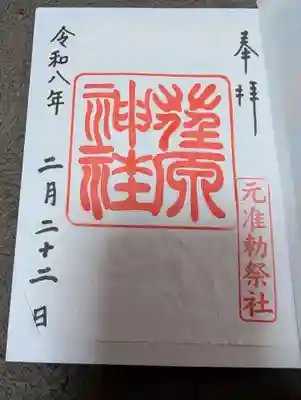 奉拝
元准勅祭社
荏原
神社
令和八年
二月二十二日